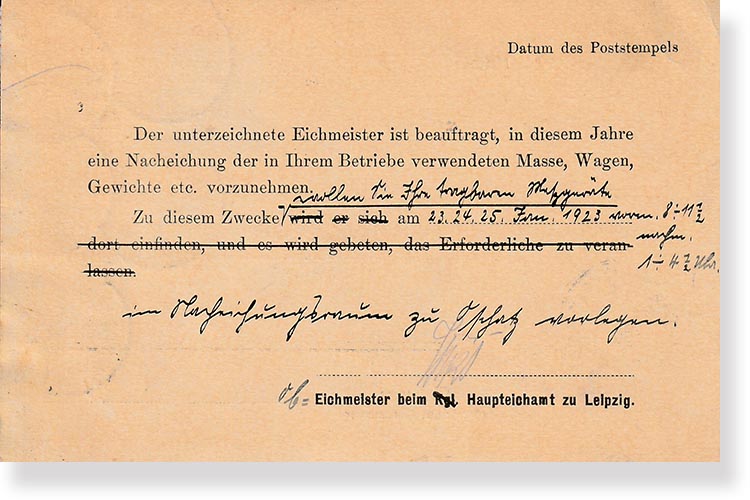 Datum des Poststempels
Der unterzeichnete Eichmeister ist beauftragt, in diesem Jahre
eine Nacheichung der in Ihrem Betriebe verwendeten Masse, Wagen,
Gewichte etc. vorzunehmen.
wollen Sie Ihre tragbaren Meßgeräte
Zu diesem Zwecke wird er sich am 23. 24. 25. Jan. 1923 vorm. 8-11 1/2
dort einfinden, und es wird gebeten, das Erforderliche zu veran-
nachm.
lassen.
1-4 1/2 Uhr.
im Nacheichungsraum zu Oschatz vorlegen.
Ob= Eichmeister beim Kgl. Haupteichamt zu Leipzig.